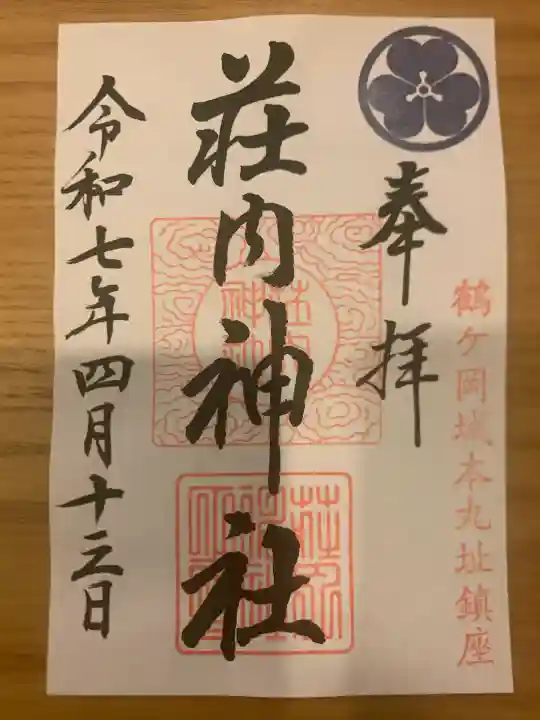 奉拝
鶴ケ岡城本丸址鎮座
荘内神社
令和七年四月十三日